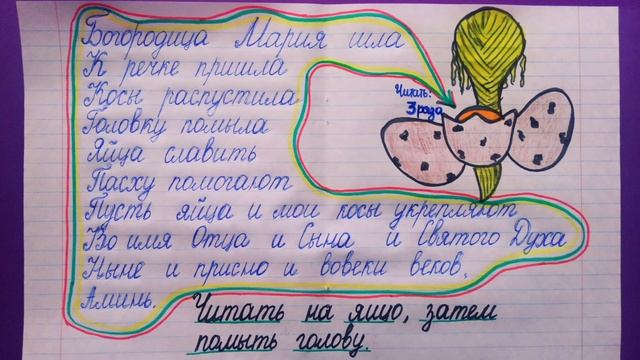 Богородица Мария шла
К речке пришла
Косы распустила
Головку помыла
Яйца славить
Пасху помогают
Пусть яйца и мои косы укрепляют
Во имя Отца и Сына и Святого Духа
Ныне и присно и вовеки веков.
Аминь.
Читать:
3 раза
Читать на яйцо, затем
помыть голову.